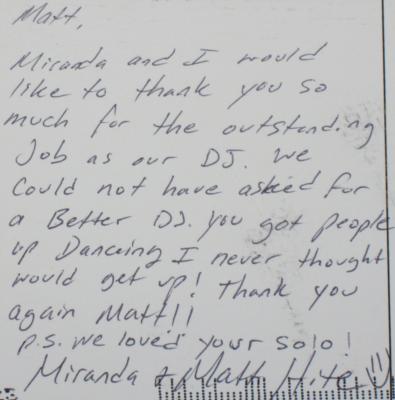 Matt,
Miranda and I would
like to thank you so
much for the outstanding
Job as our DJ. We
could not have asked for
a Better DJ. you got people
up Danceing I never thought
would get up! Thank you
again Matt!!
p.s. we loved your solo!
Miranda & Matt Hite